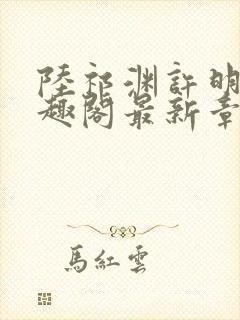 陸祁渊許明
趣閣最新章
馬紅雲